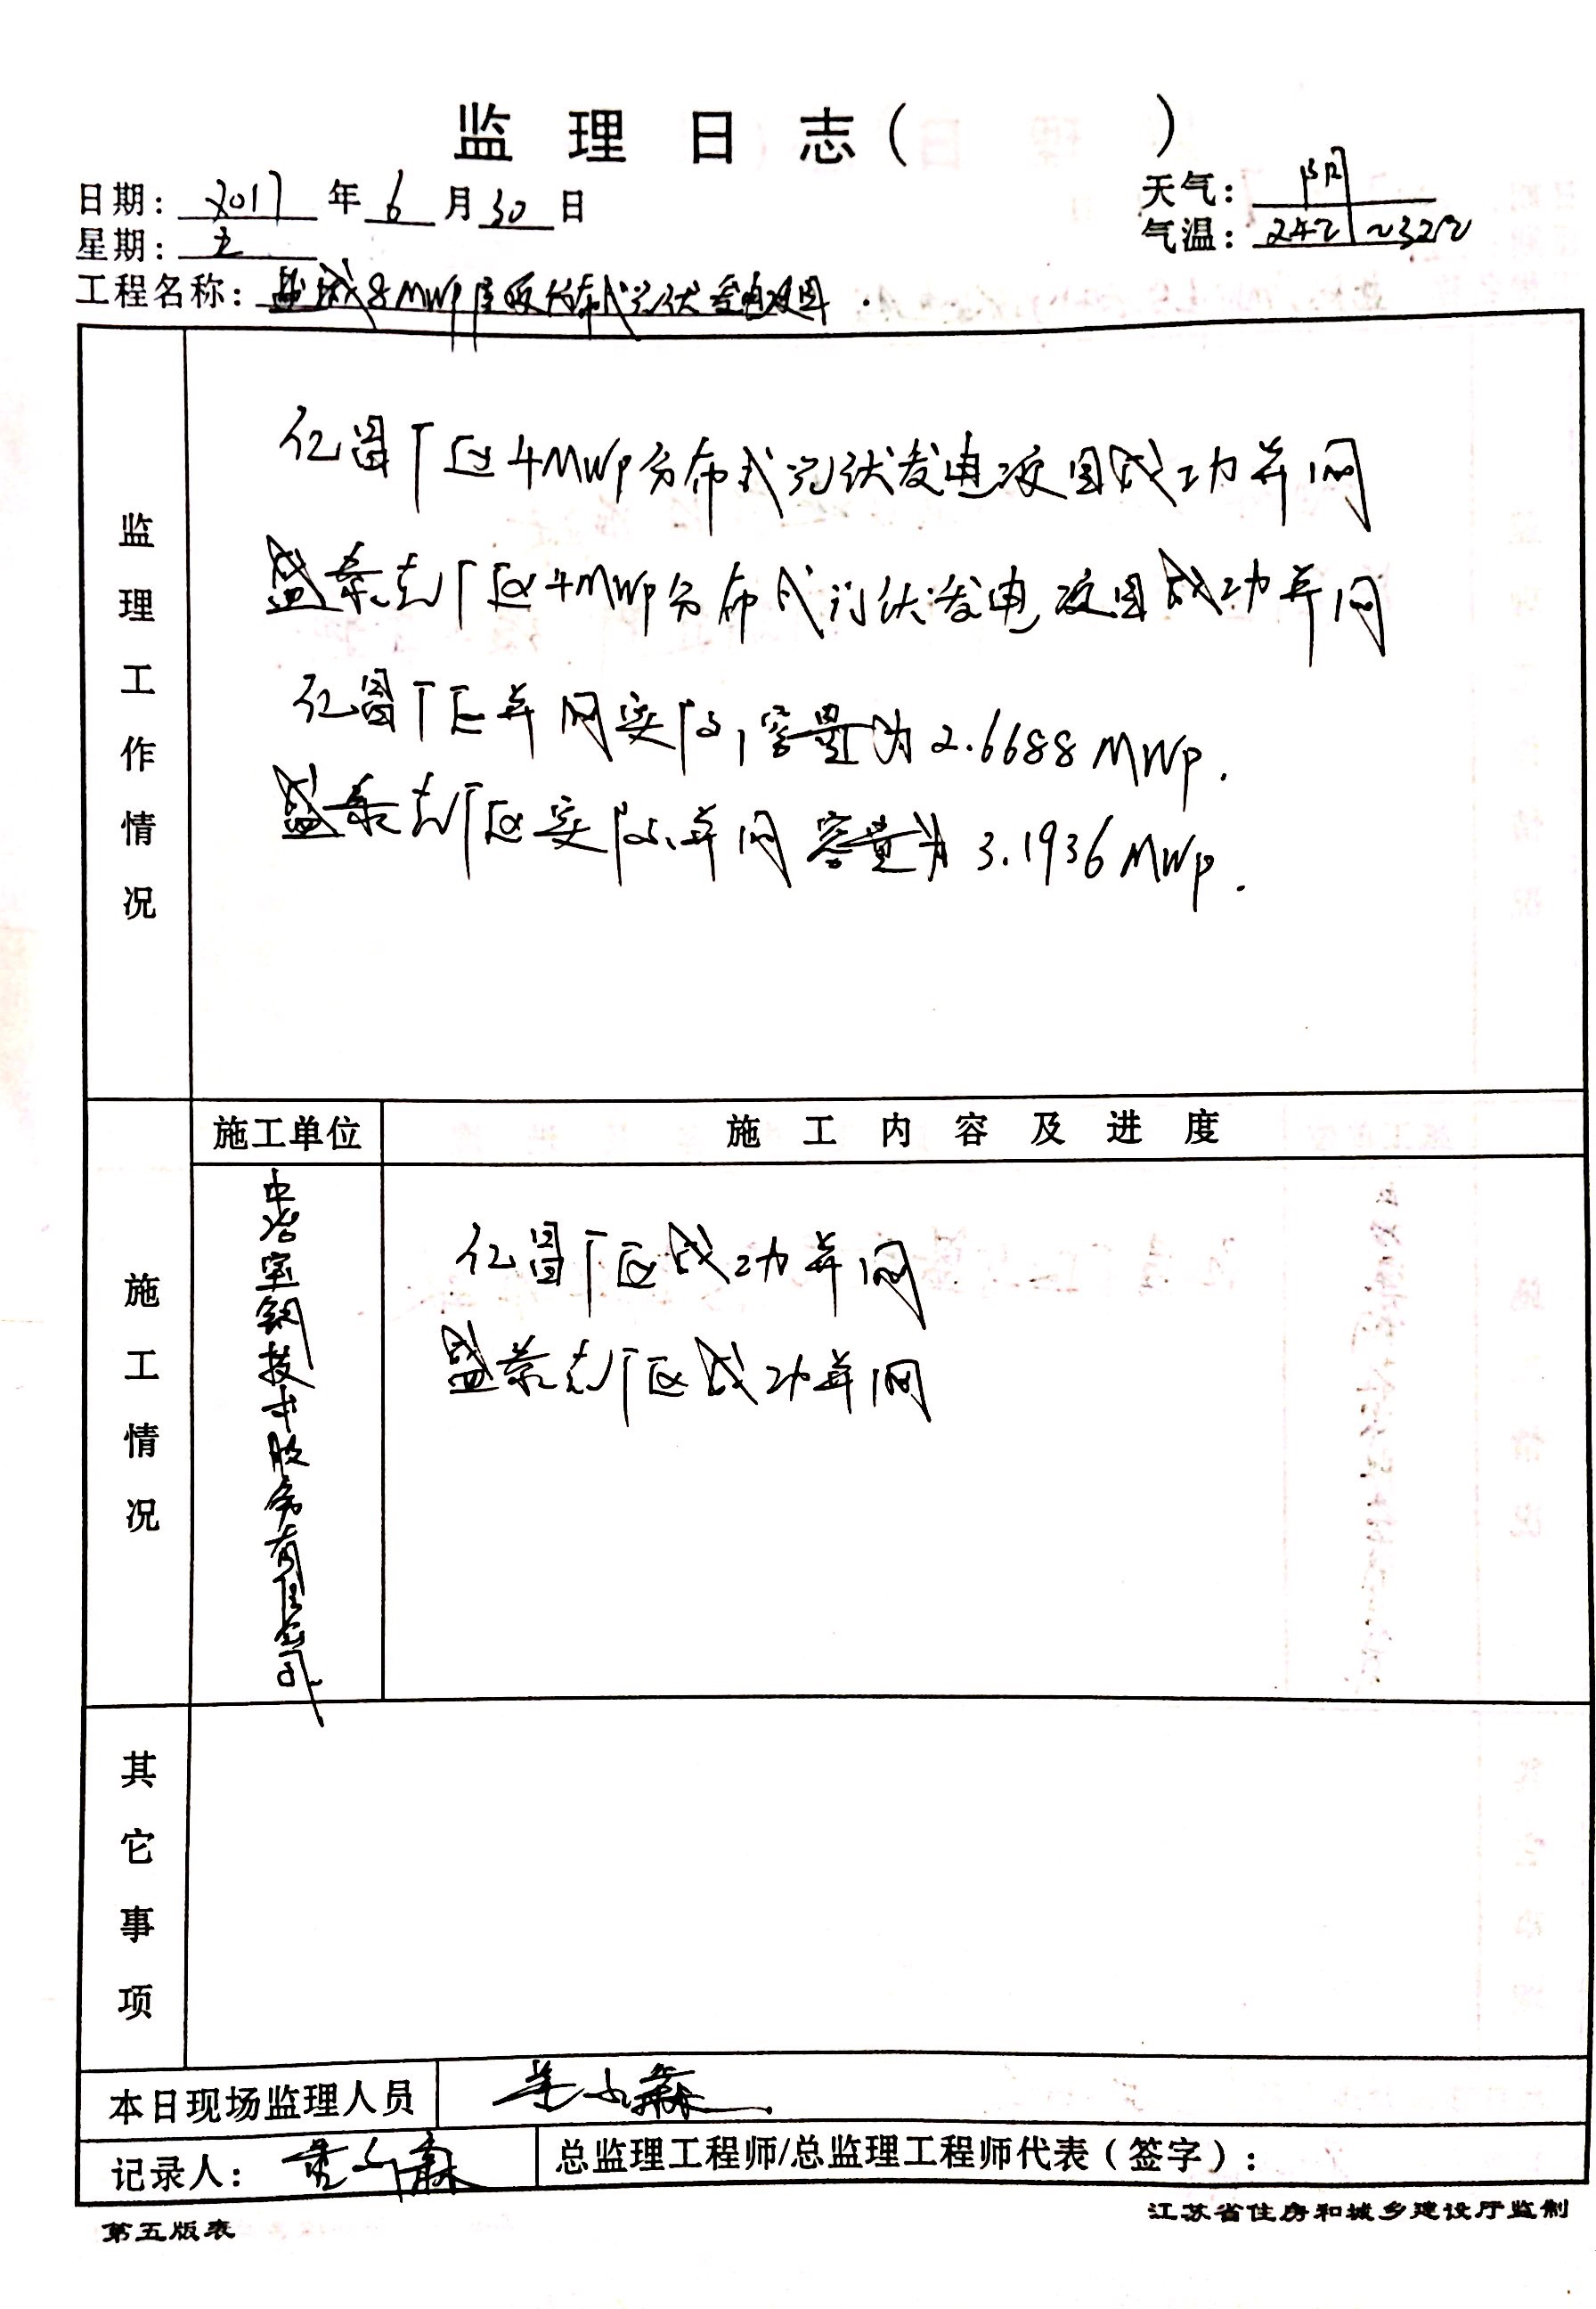 监理日志（ ）
日期：2017年6月30日
天气：阴
星期：五
气温：24℃~32℃
工程名称：盐城8MWp屋顶分布式光伏发电项目
监理工作情况
亿昌厂区4MWp分布式光伏发电项目成功并网
盛泰克厂区4MWp分布式光伏发电项目成功并网
亿昌厂区并网实际容量为2.6688MWp.
盛泰克厂区实际并网容量为3.1936MWp.
施工单位
施工内容及进度
施工情况
中冶宝钢技术服务有限公司
亿昌厂区成功并网
盛泰克厂区成功并网
其它事项
本日现场监理人员
记录人：
总监理工程师/总监理工程师代表（签字）：
第五版表
江苏省住房和城乡建设厅监制